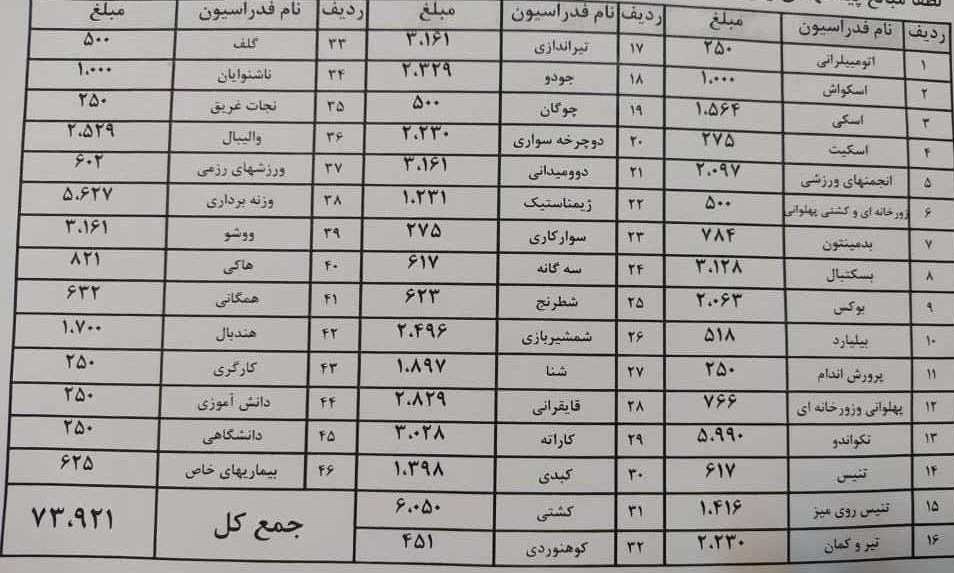 ردیف نام فدراسیون مبلغ ردیف نام فدراسیون مبلغ ردیف نام فدراسیون مبلغ
۱ اتومبیلرانی ۲۵۰ ۱۷ تیراندازی ۳،۱۶۱ ۳۳ گلف ۵۰۰
۲ اسکواش ۱،۰۰۰ ۱۸ جودو ۲،۳۲۹ ۳۴ ناشنوایان ۱،۰۰۰
۳ اسکی ۱،۵۶۴ ۱۹ چوگان ۵۰۰ ۳۵ نجات غریق ۲۵۰
۴ اسکیت ۲۷۵ ۲۰ دوچرخه سواری ۲،۲۳۰ ۳۶ والیبال ۲،۵۲۹
۵ انجمنهای ورزشی ۲،۰۹۷ ۲۱ دوومیدانی ۳،۱۶۱ ۳۷ ورزشهای رزمی ۶۰۲
۶ زورخانه ای و کشتی پهلوانی ۵۰۰ ۲۲ ژیمناستیک ۱،۲۳۱ ۳۸ وزنه برداری ۵،۶۲۷
۷ بدمینتون ۷۸۴ ۲۳ سوارکاری ۲۷۵ ۳۹ ووشو ۳،۱۶۱
۸ بسکتبال ۳،۱۲۸ ۲۴ سه گانه ۶۱۷ ۴۰ هاکی ۸۲۱
۹ بوکس ۲،۰۶۳ ۲۵ شطرنج ۶۲۳ ۴۱ همگانی ۶۳۲
۱۰ بیلیارد ۵۱۸ ۲۶ شمشیربازی ۲،۴۹۶ ۴۲ هندبال ۱،۷۰۰
۱۱ پرورش اندام ۲۵۰ ۲۷ شنا ۱،۸۹۷ ۴۳ کارگری ۲۵۰
۱۲ پهلوانی وزورخانه ای ۷۶۶ ۲۸ قایقرانی ۲،۸۲۹ ۴۴ دانش آموزی ۲۵۰
۱۳ تکواندو ۵،۹۹۰ ۲۹ کاراته ۳،۰۲۸ ۴۵ دانشگاهی ۲۵۰
۱۴ تنیس ۶۱۷ ۳۰ کبدی ۱،۳۹۸ ۴۶ بیماریهای خاص ۶۲۵
۱۵ تنیس روی میز ۱،۴۱۶ ۳۱ کشتی ۶،۰۵۰ جمع کل ۷۳،۹۲۱
۱۶ تیر و کمان ۲،۲۳۰ ۳۲ کوهنوردی ۴۵۱